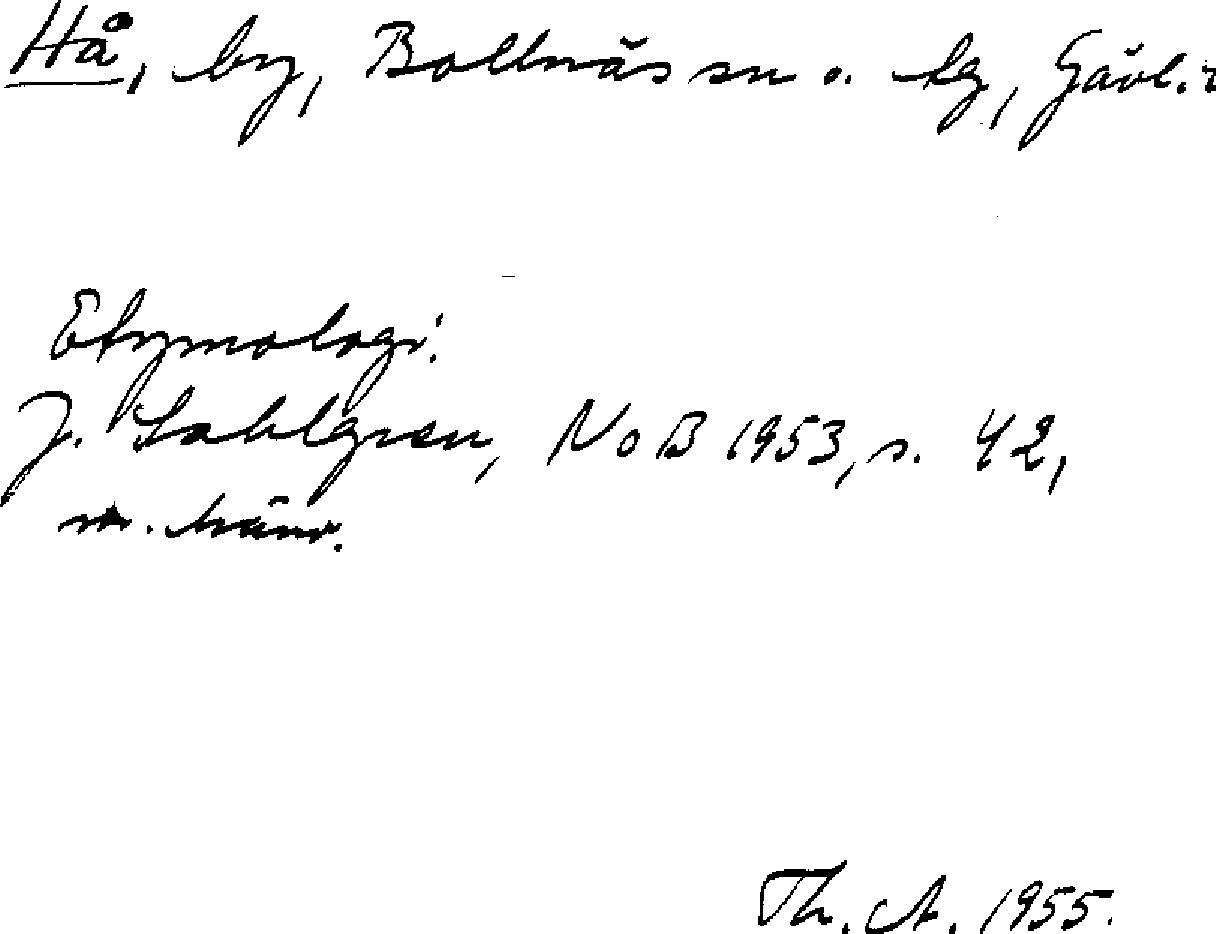 Hå, by, Bollnäs sn o. tg, Gävl.
Etymologi:
J. Sahlgren, NoB 1953, s. 42,
m. hänv.
Th. A. 1955.